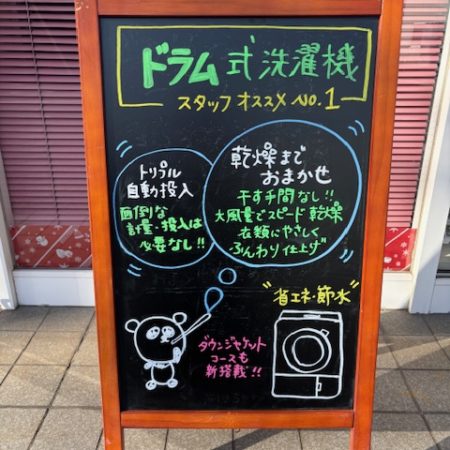 ドラム式洗濯機
スタッフオススメNO.1
トリプル
自動投入
面倒な
計量・投入は
必要なし!!
乾燥まで
おまかせ
干す手間なし!!
大風量でスピード乾燥
衣類にやさしく
ふんわり仕上げ
"省エネ・節水"
ダウンジャケット
コースも
新搭載!!